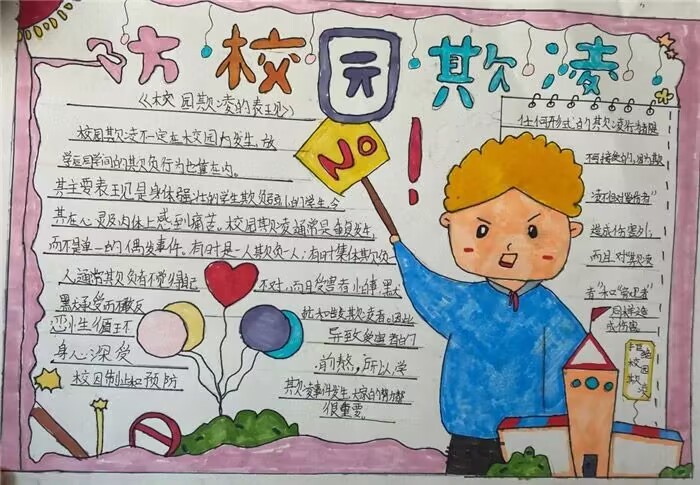 防校园欺凌
《校园欺凌的表现》
校园欺凌不一定在校园内发生,放
学后同学间的欺负行为也算在内。
其主要表现是身体强壮的学生欺负弱小的学生,令
其在心灵及肉体上感到痛苦。校园欺凌通常是重复发生,
而不是单一的偶发事件。有时是一人欺负一人;有时集体欺负一
人通常欺负者不觉得自己
不对,而且受害者小 默
默承受而不敢反
抗和 欺凌者。因此
恐小生值
导致受害者的
身心深受
煎熬,所以学
校园制止和预防
欺凌事件发生,大家的努力都
很重要。
NO
!
任何形式的欺凌行为都是
不可接受的,因为欺
凌不但对受伤者
造成伤害外,
而且对欺凌
者"和"旁观者"
同样造
成伤害
拒绝
校园
欺凌